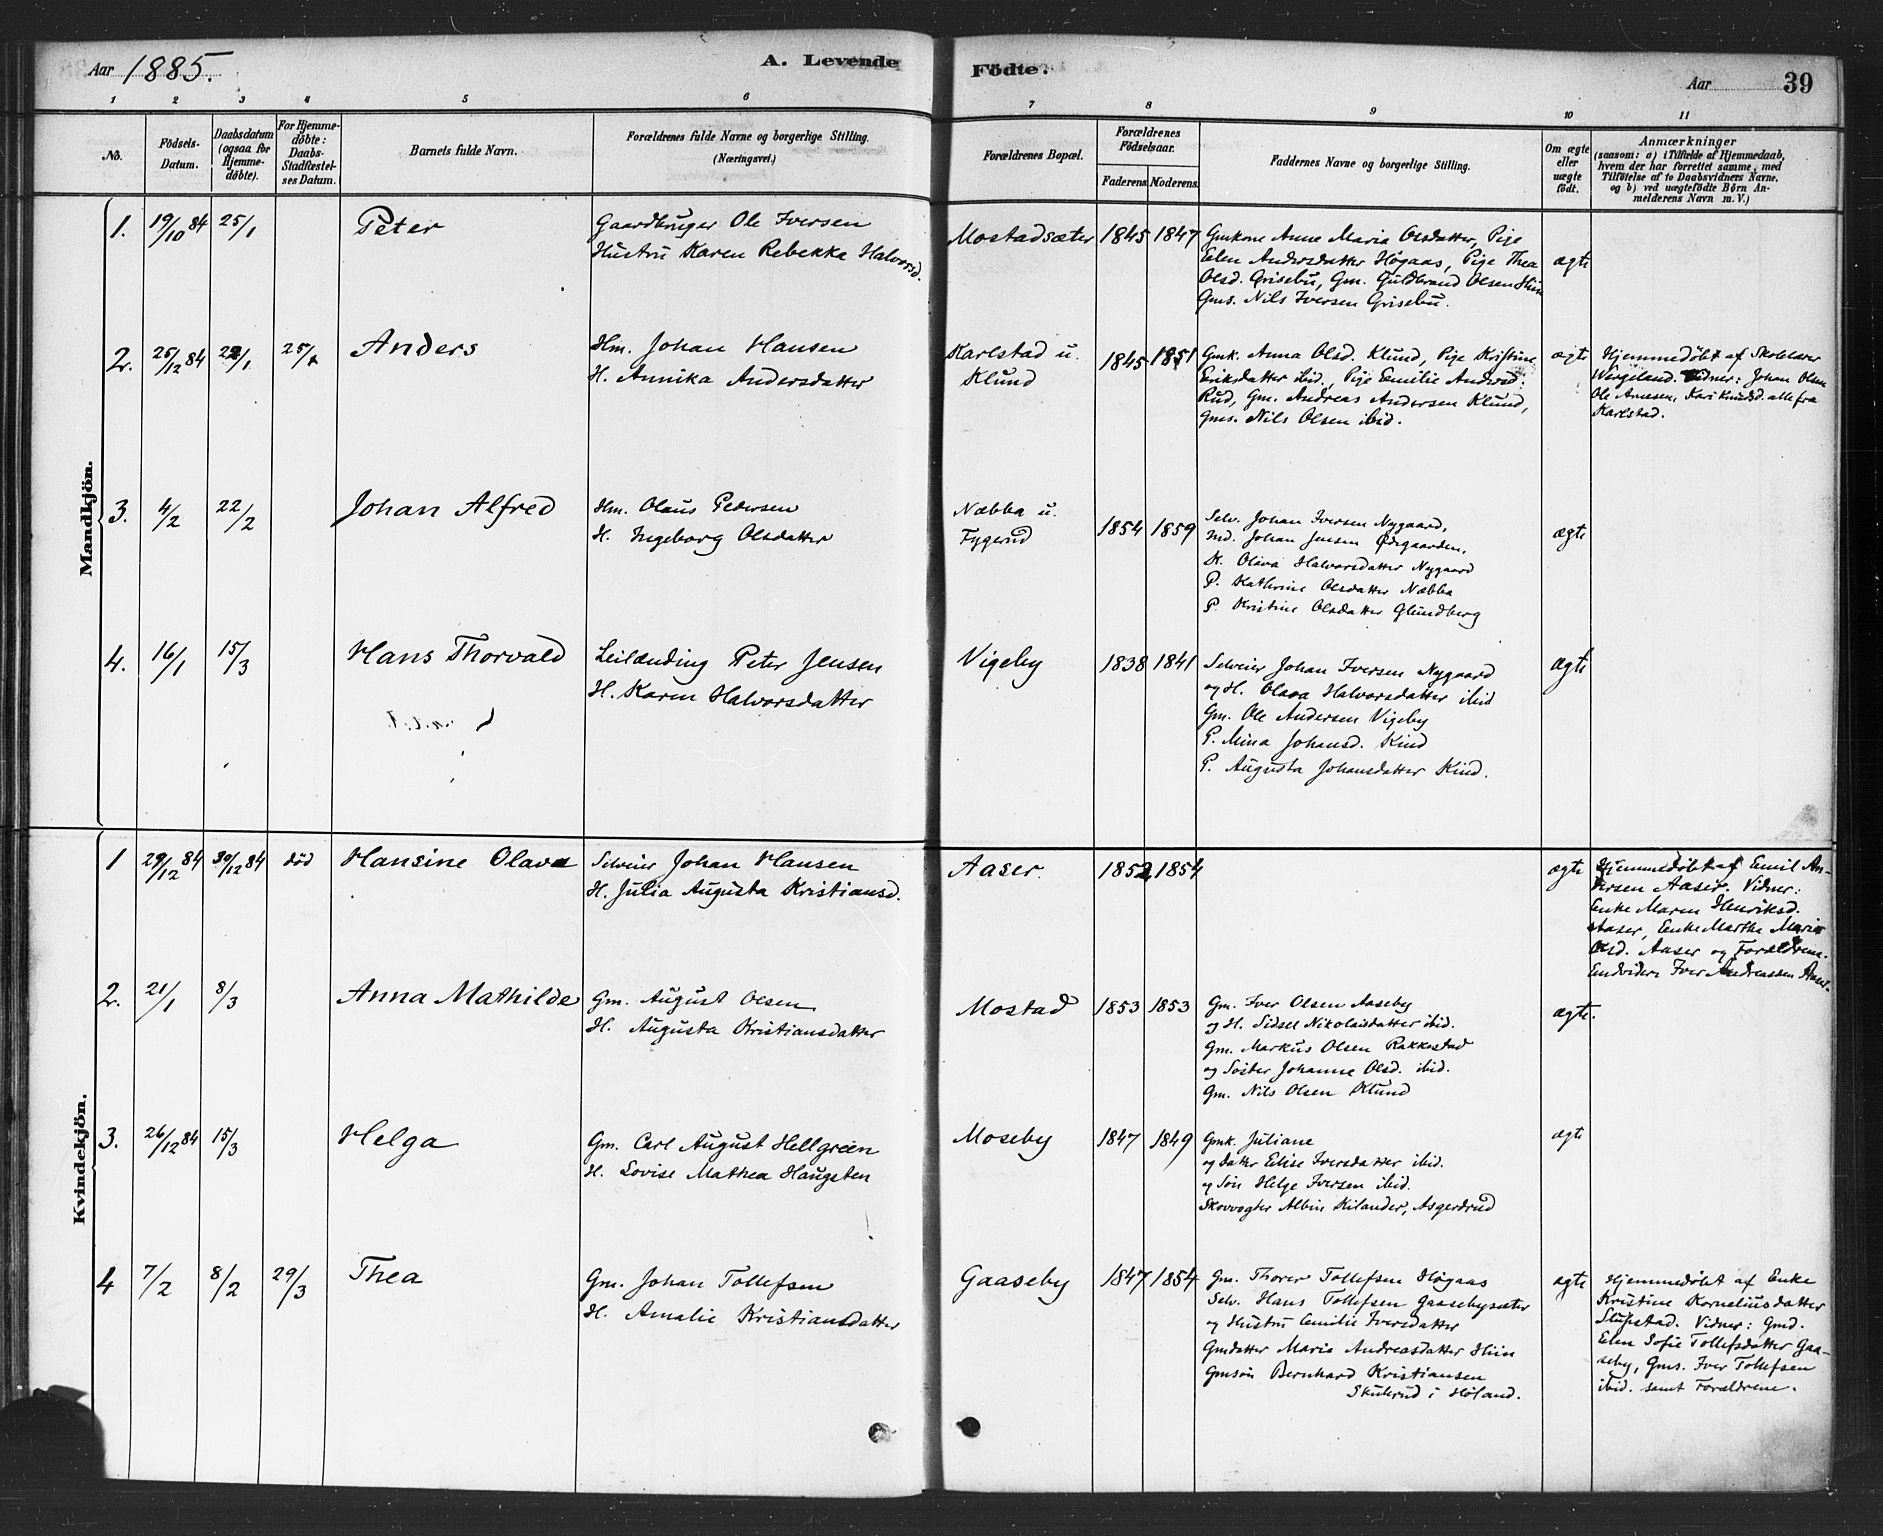 Aar 1885. A. Levende Fødte. Aar 39
1 2 3 4 5 6 7 8 9 10 11
No.
Födsels-
Datum.
Daabsdatum
(ogsaa for
Hjemme-
döbte).
For Hjemme-
döbte:
Daabs-
Stadfæstel-
ses Datum.
Barnets fulde Navn.
Forældrenes fulde Navne og borgerlige Stilling.
(Næringsvei.)
Forældrenes Bopæl.
Forældrenes
Födselsaar.
Faderens Moderens.
Faddernes Navne og borgerlige Stilling.
Om ægte
eller
uægte
födt.
Anmærkninger
(saasom: a) i Tilfælde af Hjemmedaab,
hvem der har forrettet samme, med
Tilföielse af to Daabsvidners Navne,
og b) ved uægtefödte Börn An-
melderens Navn m. V.)
Mandkjön.
1. 19/10 84 25/1 Peter
Gaardbruger Ole Iversen
Hustru Karen Rebekka Halvorsd.
Mostadsæter 1845 1847
Gmkone Anne Maria Olsdatter, Pige
Elen Andersdatter Høgaas, Pige Thea
Olsd. Grisebu, Gm. Guldbrand Olsen Hiin
Gms. Nils Iversen Grisebu.
ægte
2. 25/12 84 22/1 25/1 Anders
Hm. Johan Hansen
H. Annika Andersdatter
Karlstad u.
Klund
1845 1851
Gmk. Anna Olsd. Klund, Pige Kristine
Eriksdatter ibid., Pige Emilie Andersd.
Rud, Gm. Andreas Andersen Klund,
Gms. Nils Olsen ibid.
ægte
Hjemmedøbt af Skolelærer
Wergeland. Vidner: Johan Olsen
Ole Arnesen, Kari Knudsd. alle fra
Karlstad.
3. 4/2 22/2 Johan Alfred
Hm. Olaus Pedersen
H. Ingeborg Olsdatter
Næbba u.
Fygerud
1854 1859
Selv. Johan Iversen Nygaard,
Ind. Johan Jensen Ødegaarden,
K. Olava Halvorsdatter Nygaard
P. Kathrine Olsdatter Næbba
P. Kristine Olsdatter Glundberg
ægte
4. 16/1 15/3 Hans Thorvald
Leilænding Peter Jensen
H. Karen Halvorsdatter
Vigeby 1838 1841
Selveier Johan Iversen Nygaard
og H. Olava Halvorsdatter ibid
Gm. Ole Andersen Vigeby
P. Mina Johansd. Kind
P. Augusta Johansdatter Kind.
ægte
Kvindekjön.
1 29/12 84 30/12 84 død Hansine Olava
Selveier Johan Hansen
H. Julia Augusta Kristiansd.
Aaser. 1852 1854
ægte
Hjemmedøbt af Emil An-
dersen Aaser. Vidner:
Enke Maren Henriksd.
Aaser, Enke Marthe Marie
Olsd. Aaser og Forældrene.
Endvidere Iver Andreassen Aaser.
2. 21/1 8/3 Anna Mathilde
Gm. August Olsen
H. Augusta Kristiansdatter
Mostad 1853 1853
Gm. Iver Olsen Aaseby
og H. Sidsel Nikolaisdatter ibid.
Gm. Markus Olsen Rakkestad
og Søster Johanne Olsd. ibid.
Gm. Nils Olsen Klund
ægte.
3. 26/12 84 15/3 Helga
Gm. Carl August Hellgreen
H. Lovise Mathea Haugsten
Moseby 1847 1849
Gmk. Juliane
og datter Elise Iversdatter ibid.
og Søn Helge Iversen ibid.
Skovvogter Albin Kilander, Asgerdrud
ægte
4 7/2 8/2 29/3 Thea
Gm. Johan Tollefsen
H. Amalie Kristiansdatter
Gaaseby 1847 1854
Gm. Thorer Tollefsen Høgaas
Selv. Hans Tollefsen Gaasebysæter
og Hustru Emilie Iversdatter
Gmdatter Maria Andreasdatter Hiin
Gmsøn Bernhard Kristiansen
Skulerud i Høland.
ægte
Hjemmedøbt af Enke
Kristine Korneliusdatter
Slupstad. Vidner: Gmd.
Elen Sofie Tollefsdatter Gaa-
seby, Gms. Iver Tollefsen
ibid. samt Forældrene.